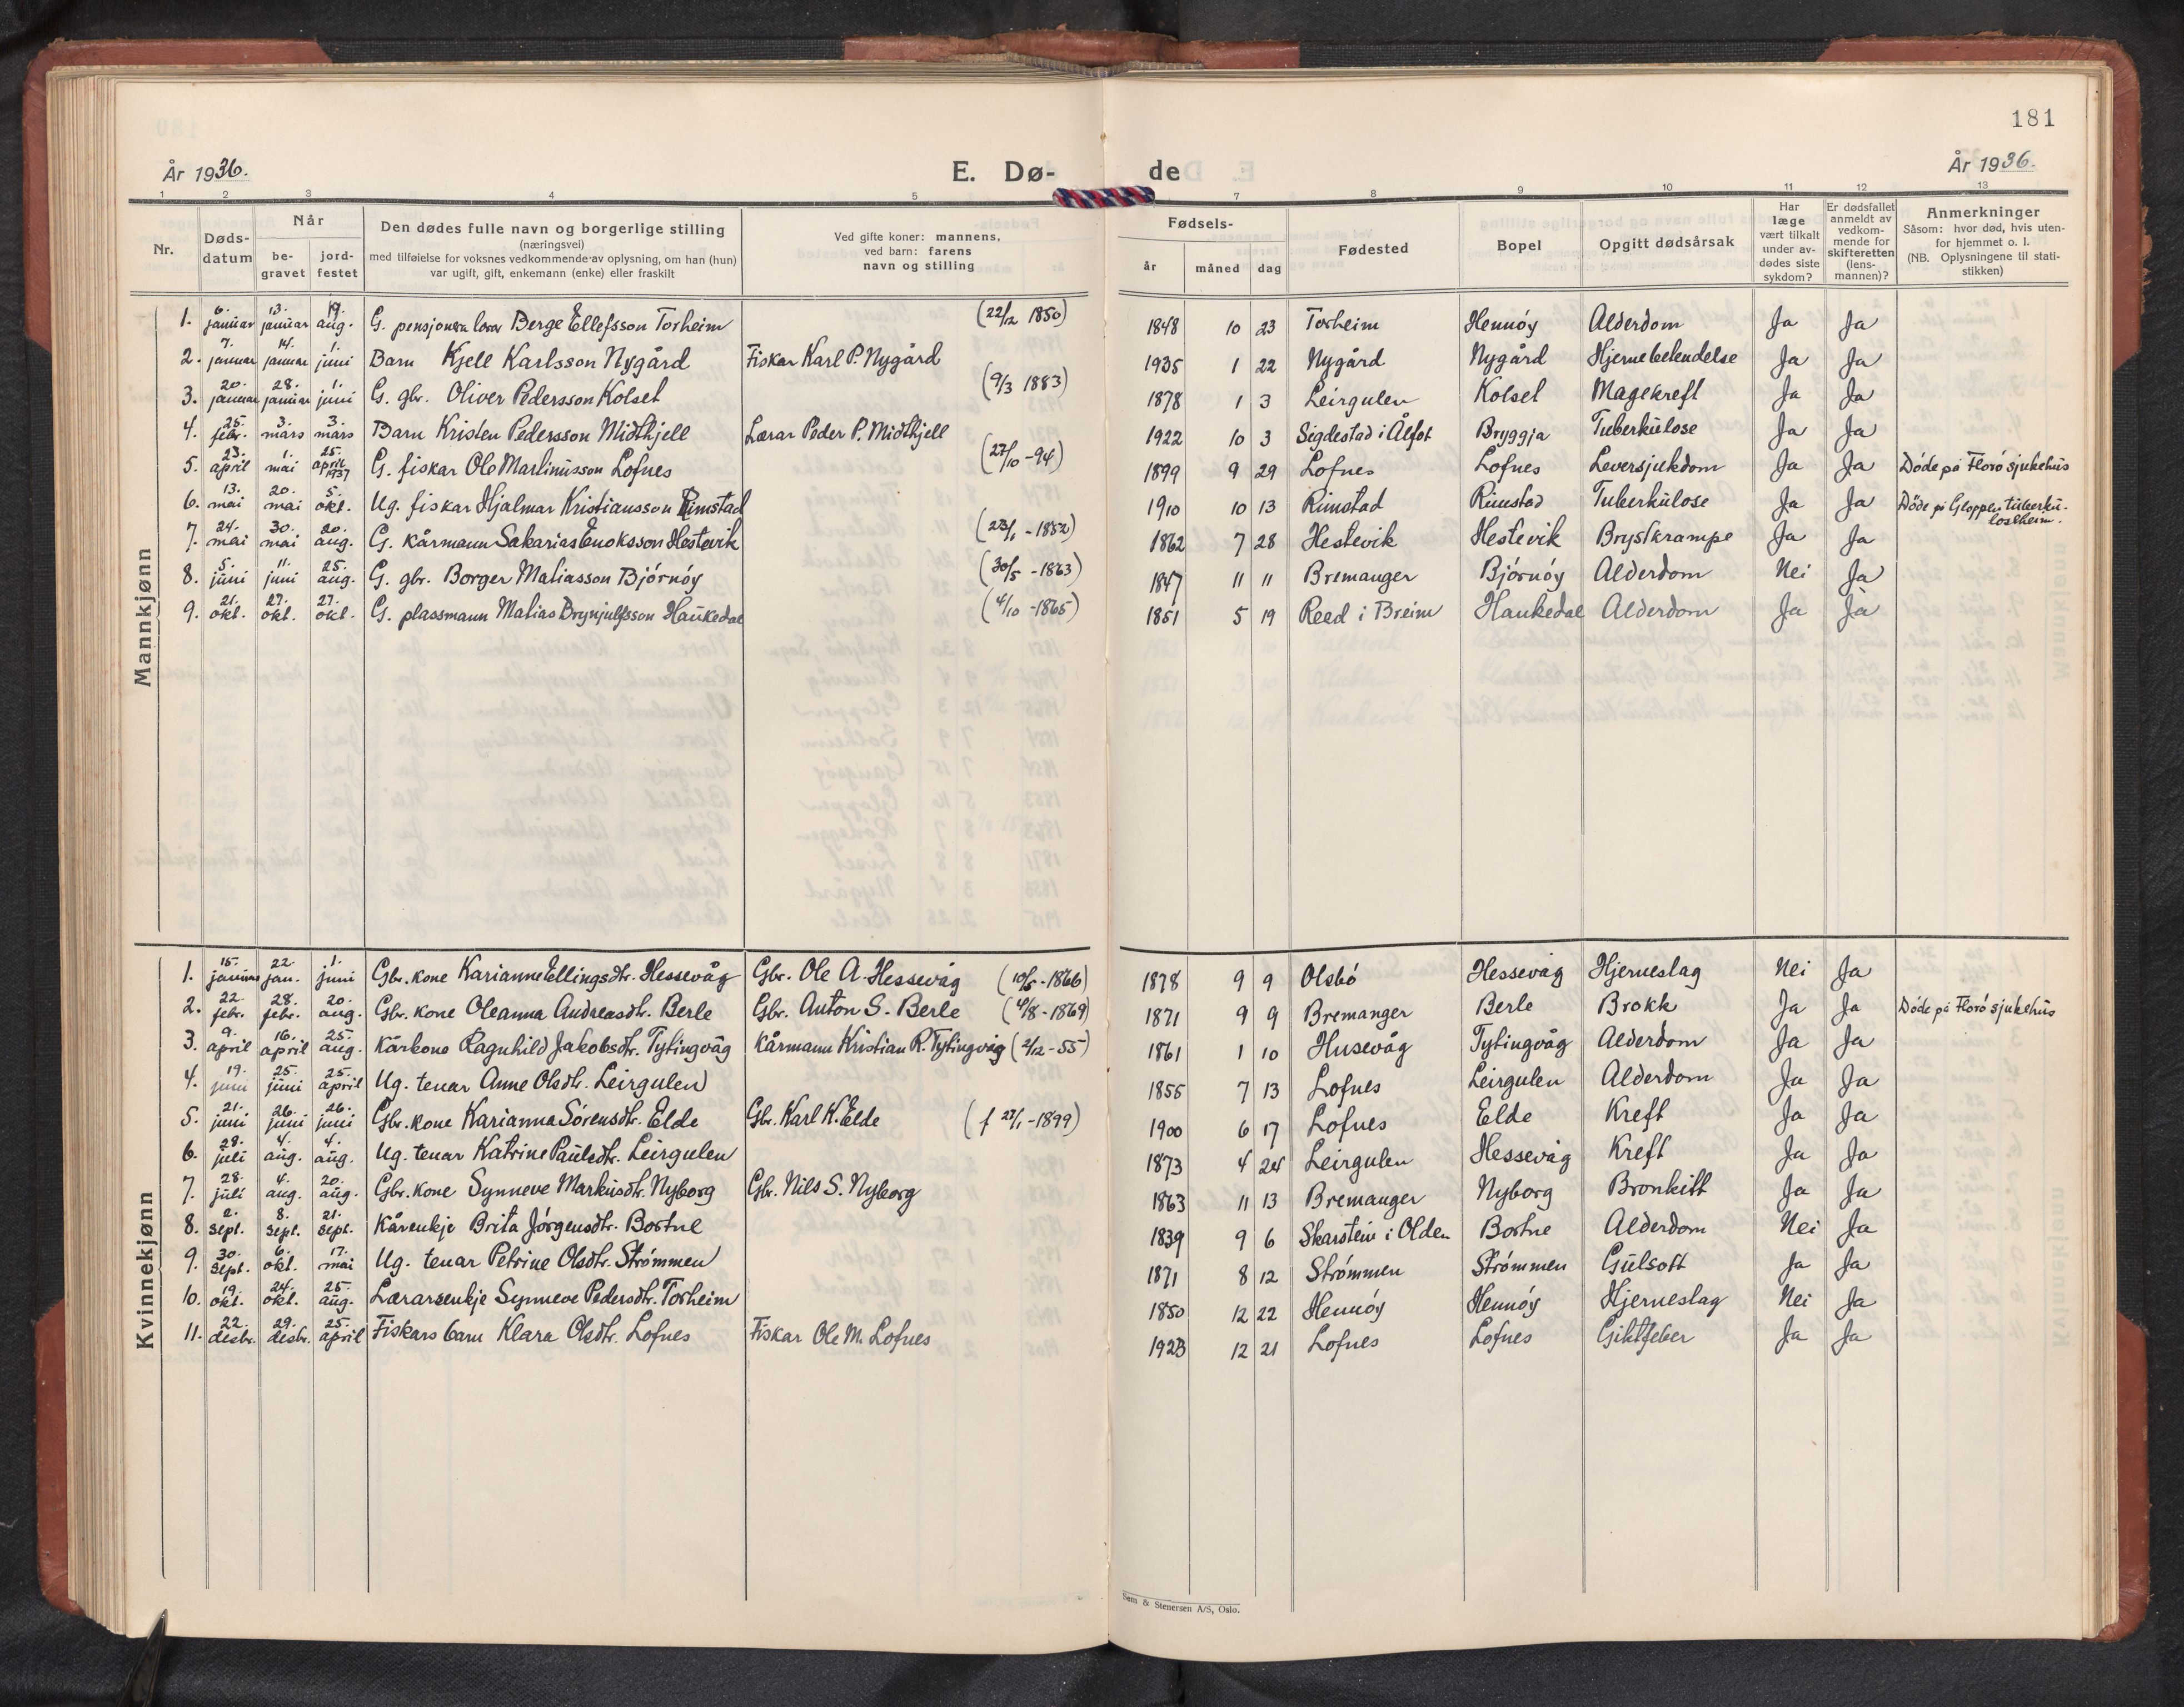 181
År 1936.
E. Dø-
de
År 1936.
1 2 3 4 5 7 8 9 10 11 12 13
Nr.
Døds-
datum
Når
be-
gravet
jord-
festet
Den dødes fulle navn og borgerlige stilling
(næringsvei)
med tilføielse for voksnes vedkommende av oplysning, om han (hun)
var ugift, gift, enkemann (enke) eller fraskilt
Ved gifte koner: mannens,
ved barn: farens
navn og stilling
Fødsels-
år måned dag
Fødested
Bopel
Opgitt dødsårsak
Har
læge
vært tilkalt
under av-
dødes siste
sykdom?
Er dødsfallet
anmeldt av
vedkom-
mende for
skifteretten
(lens-
mannen)?
Anmerkninger
Såsom: hvor død, hvis uten-
for hjemmet o. l.
(NB. Oplysningene til stati-
stikken)
Mannkjønn
1. 6. januar 13. januar 19. aug. G. pensjonera lærar Berge Ellefsson Torheim (22/12 1850) 1848 10 23 Torheim Hennöy Alderdom Ja Ja
2. 7. januar 14. januar 1. juni Barn Kjell Karlsson Nygård Fiskar Karl P. Nygård 1935 1 22 Nygård Nygård Hjernebetendelse Ja Ja
3. 20. januar 28. januar 1. juni G. gbr. Oliver Pedersson Kolset (9/3 1883) 1878 1 3 Leirgulen Kolset Magekreft Ja Ja
4. 25. febr. 3. mars 3. mars Barn Kristen Pedersson Midthjell Lærar Peder P. Midthjell 1922 10 3 Sigdestad i Ålfot Bryggja Tuberkulose Ja Ja
5. 23. april 1. mai 25. april 1937 G. fiskar Ole Martinusson Lofnes (27/10 -94) 1899 9 29 Lofnes Lofnes Leversjukdom Ja Ja Döde på Florö sjukehus
6. 13. mai 20. mai 5. okt. Ug. fiskar Hjalmar Kristiansson Rimstad 1910 10 13 Rimstad Rimstad Tuberkulose Ja Ja Döde på Gloppen tuberku-
losheim.
7. 24. mai 30. mai 20. aug. G. kårmann Sakarias Enoksson Hestevik (23/1 -1852) 1862 7 28 Hestevik Hestevik Brystkrampe Ja Ja
8. 5. juni 11. juni 25. aug. G. gbr. Borger Matiasson Björnöy (30/5 -1863) 1847 11 11 Bremanger Björnöy Alderdom Nei Ja
9. 21. okt. 27. okt. 27. okt. G. plassmann Matias Brynjulfsson Haukedal (4/10 -1865) 1851 5 19 Reed i Breim Haukedal Alderdom Ja Ja
Kvinnekjønn
1. 15. januar 22. jan. 1. juni Gbr. kone Karianne Ellingsdtr. Hessevåg Gbr. Ole A. Hessevåg (10/5 -1866) 1878 9 9 Olsbö Hessevåg Hjerneslag Nei Ja
2. 22. febr. 28. febr. 20. aug. Gbr. kone Oleanna Andreasdtr. Berle Gbr. Anton S. Berle (4/8 -1869) 1871 9 9 Bremanger Berle Brokk Ja Ja Döde på Florö sjukehus
3. 9. april 16. april 25. aug. Kårkone Ragnhild Jakobsdtr. Tytingvåg Kårmann Kristian R. Tytingvåg (2/12 -55) 1861 1 10 Husevåg Tytingvåg Alderdom Ja Ja
4. 19. juni 25. juni 25. april Ug. tenar Anne Olsdtr. Leirgulen 1855 7 13 Lofnes Leirgulen Alderdom Ja Ja
5. 21. juni 26. juni 26. juni Gbr. kone Karianna Sörensdtr. Elde Gbr. Karl K. Elde (f 27/1 -1899) 1900 6 17 Lofnes Elde Kreft Ja Ja
6. 28. juli 4. aug. 4. aug. Ug. tenar Katrine Paulsdtr. Leirgulen 1873 4 24 Leirgulen Hessevåg Kreft Ja Ja
7. 28. juli 4. aug. 20. aug. Gbr. kone Synneve Markusdtr. Nyborg Gbr. Nils S. Nyborg 1863 11 13 Bremanger Nyborg Bronkitt Ja Ja
8. 2. sept. 8. sept. 21. sept. Kårenkje Brita Jörgensdtr. Bortne 1839 9 6 Skarstein i Olden Bortne Alderdom Nei Ja
9. 30. sept. 6. okt. 17. mai Ug. tenar Petrine Olsdtr. Strömmen 1871 8 12 Strömmen Strömmen Gulsott Ja Ja
10. 19. okt. 24. okt. 25. aug. Lærarsenkje Synneve Pedersdtr. Torheim 1850 12 22 Hennöy Hennöy Hjerneslag Nei Ja
11. 22. desbr. 29. desbr. 25. april Fiskars barn Klara Olsdtr. Lofnes Fiskar Ole M. Lofnes 1923 12 21 Lofnes Lofnes Giktfeber Ja Ja
Sem & Stenersen A/S, Oslo.